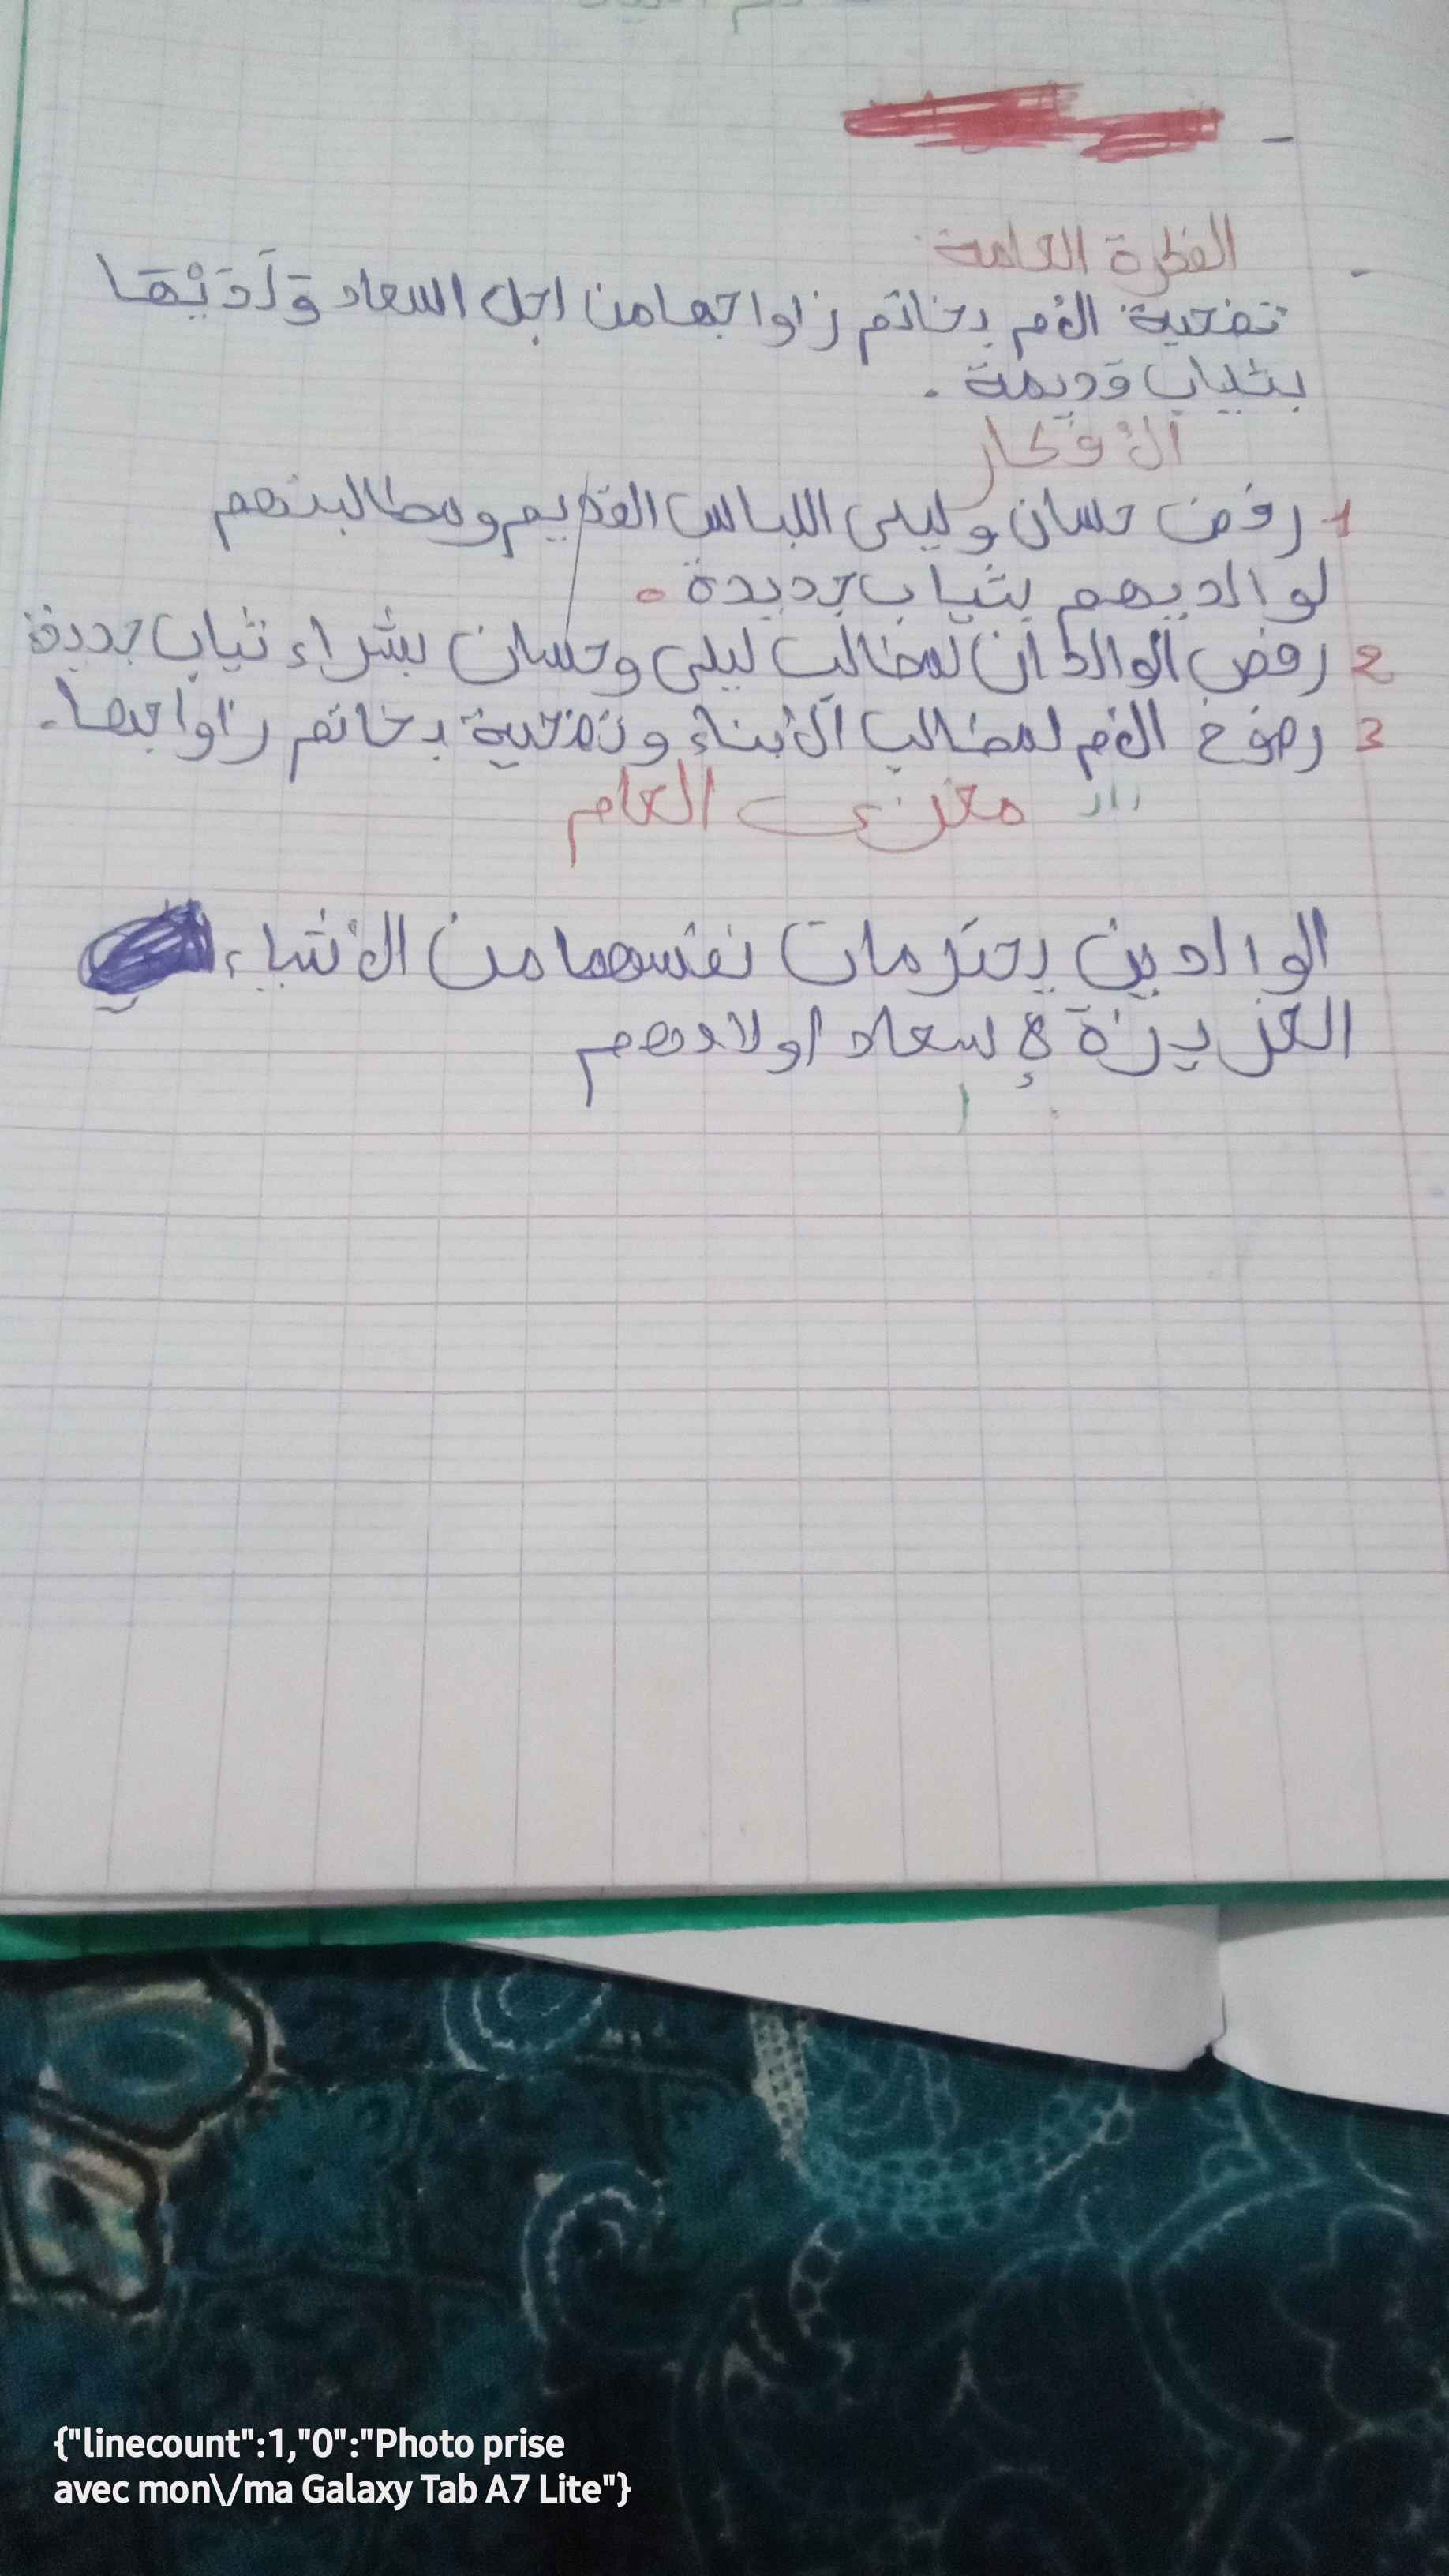 الفكرة العامة
تضحية الأم بخاتم زاواجها من اجل السعاد وَلَدَيْهَا
بثياب قديمة .
الأفكار
1 رفض حسان وليلى اللباس القديم ومطالبتهم
لوالديهم بثياب جديدة .
2 رفض الوالدان لمطالب ليلى وحسان بشراء ثياب جديدة
3 رضوخ الأم لمطالب الأبناء وتضحية بخاتم زاواجها .
مغزى العام
الوالدين يحترمان نفسهما من الأشياء
العزيزة لإسعاد اولادهم
{"linecount":1,"0":"Photo prise
avec mon\/ma Galaxy Tab A7 Lite"}